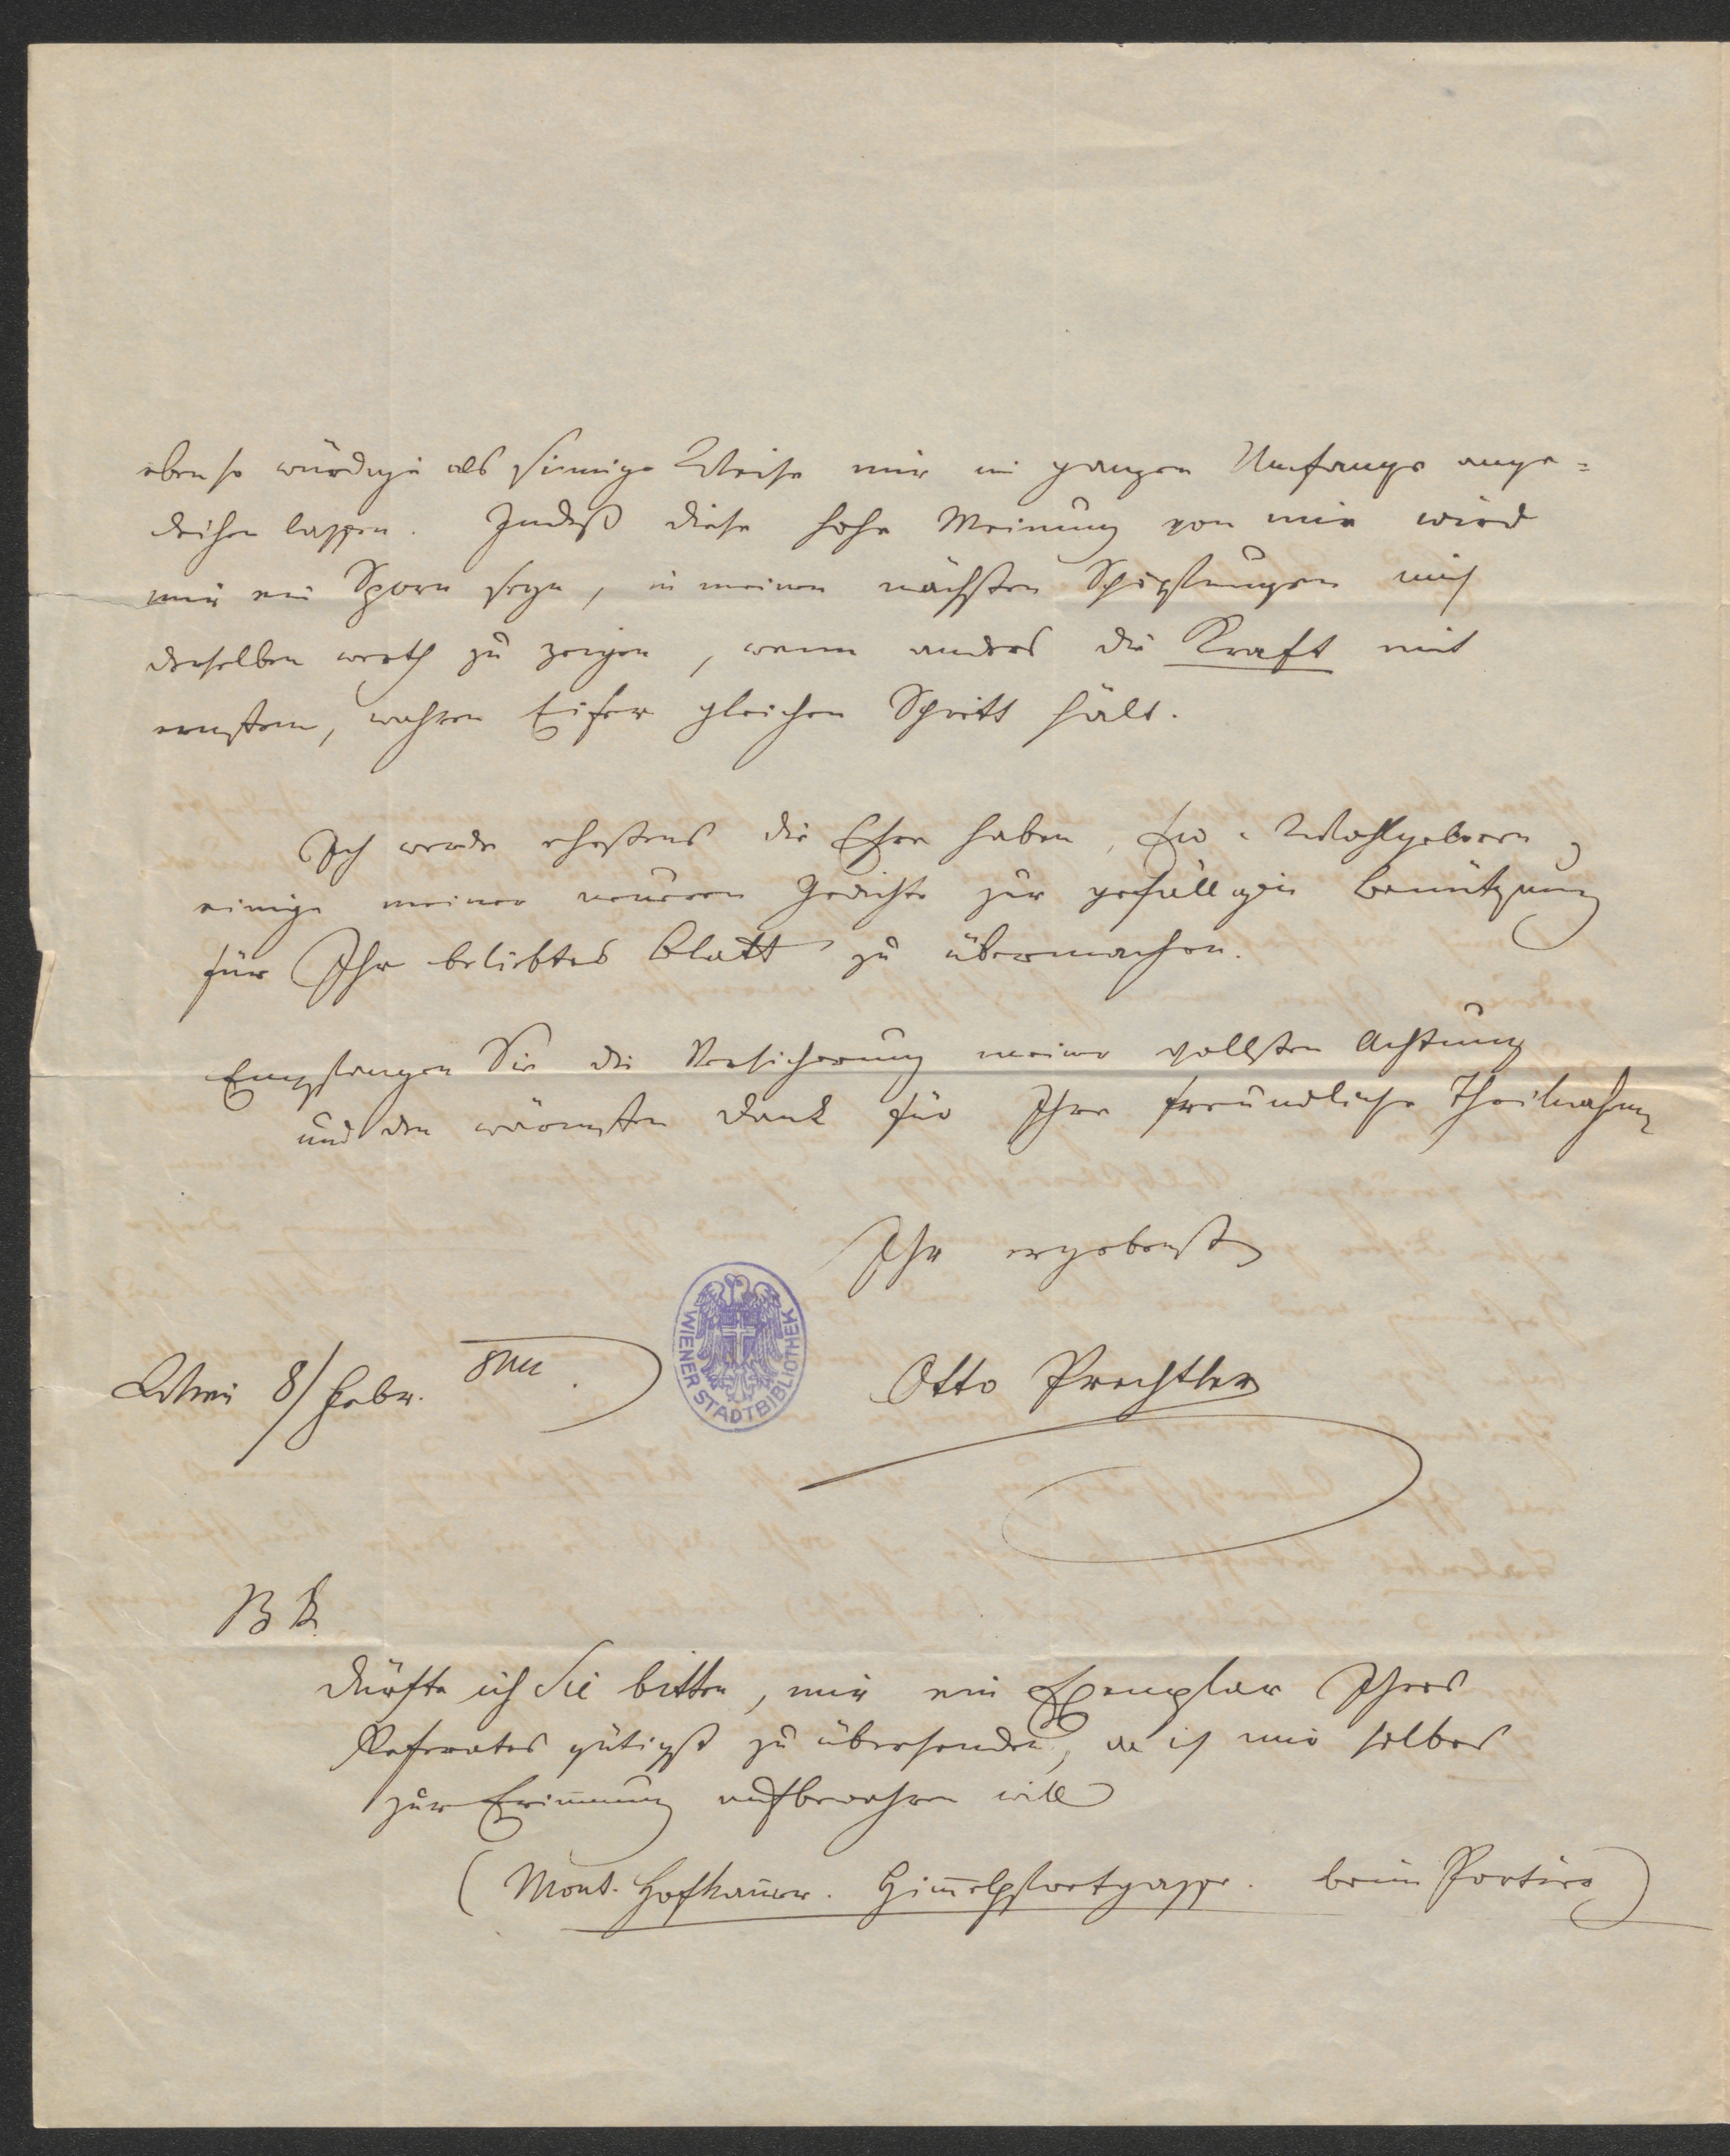 eben so würdige als sinnige Weise mir im ganzen Umfange ange=
deihen lassen. Indeß diese hohe Meinung von mir wird
mir ein Sporn seyn, in meinen nächsten Schöpfungen mich
derselben werth zu zeigen, wenn anders die Kraft mit
ernstem, wahren Eifer gleichen Schritt hält.
Ich werde ehestens die Ehre haben, Ew. Wohlgeboren,
einige meiner neueren Gedichte zur gefälligen Benützung
für Ihr beliebtes Blatt zu übermachen.
Empfangen Sie die Versicherung meiner vollsten Achtung
und den wärmsten Dank für Ihre freundliche Theilnahme
Ihr ergebenster
Wien 8/ Febr.
Otto Prechtler
WIENER STADTBIBLIOTHEK
Dürfte ich Sie bitten, mir ein Exemplar Ihres
Referates gütigst zu übersenden, da ich mir selbes
zur Erinnerung aufbewahren will
(Mont. Hofkammer. Him̄elpfortgasse. beim Portier)